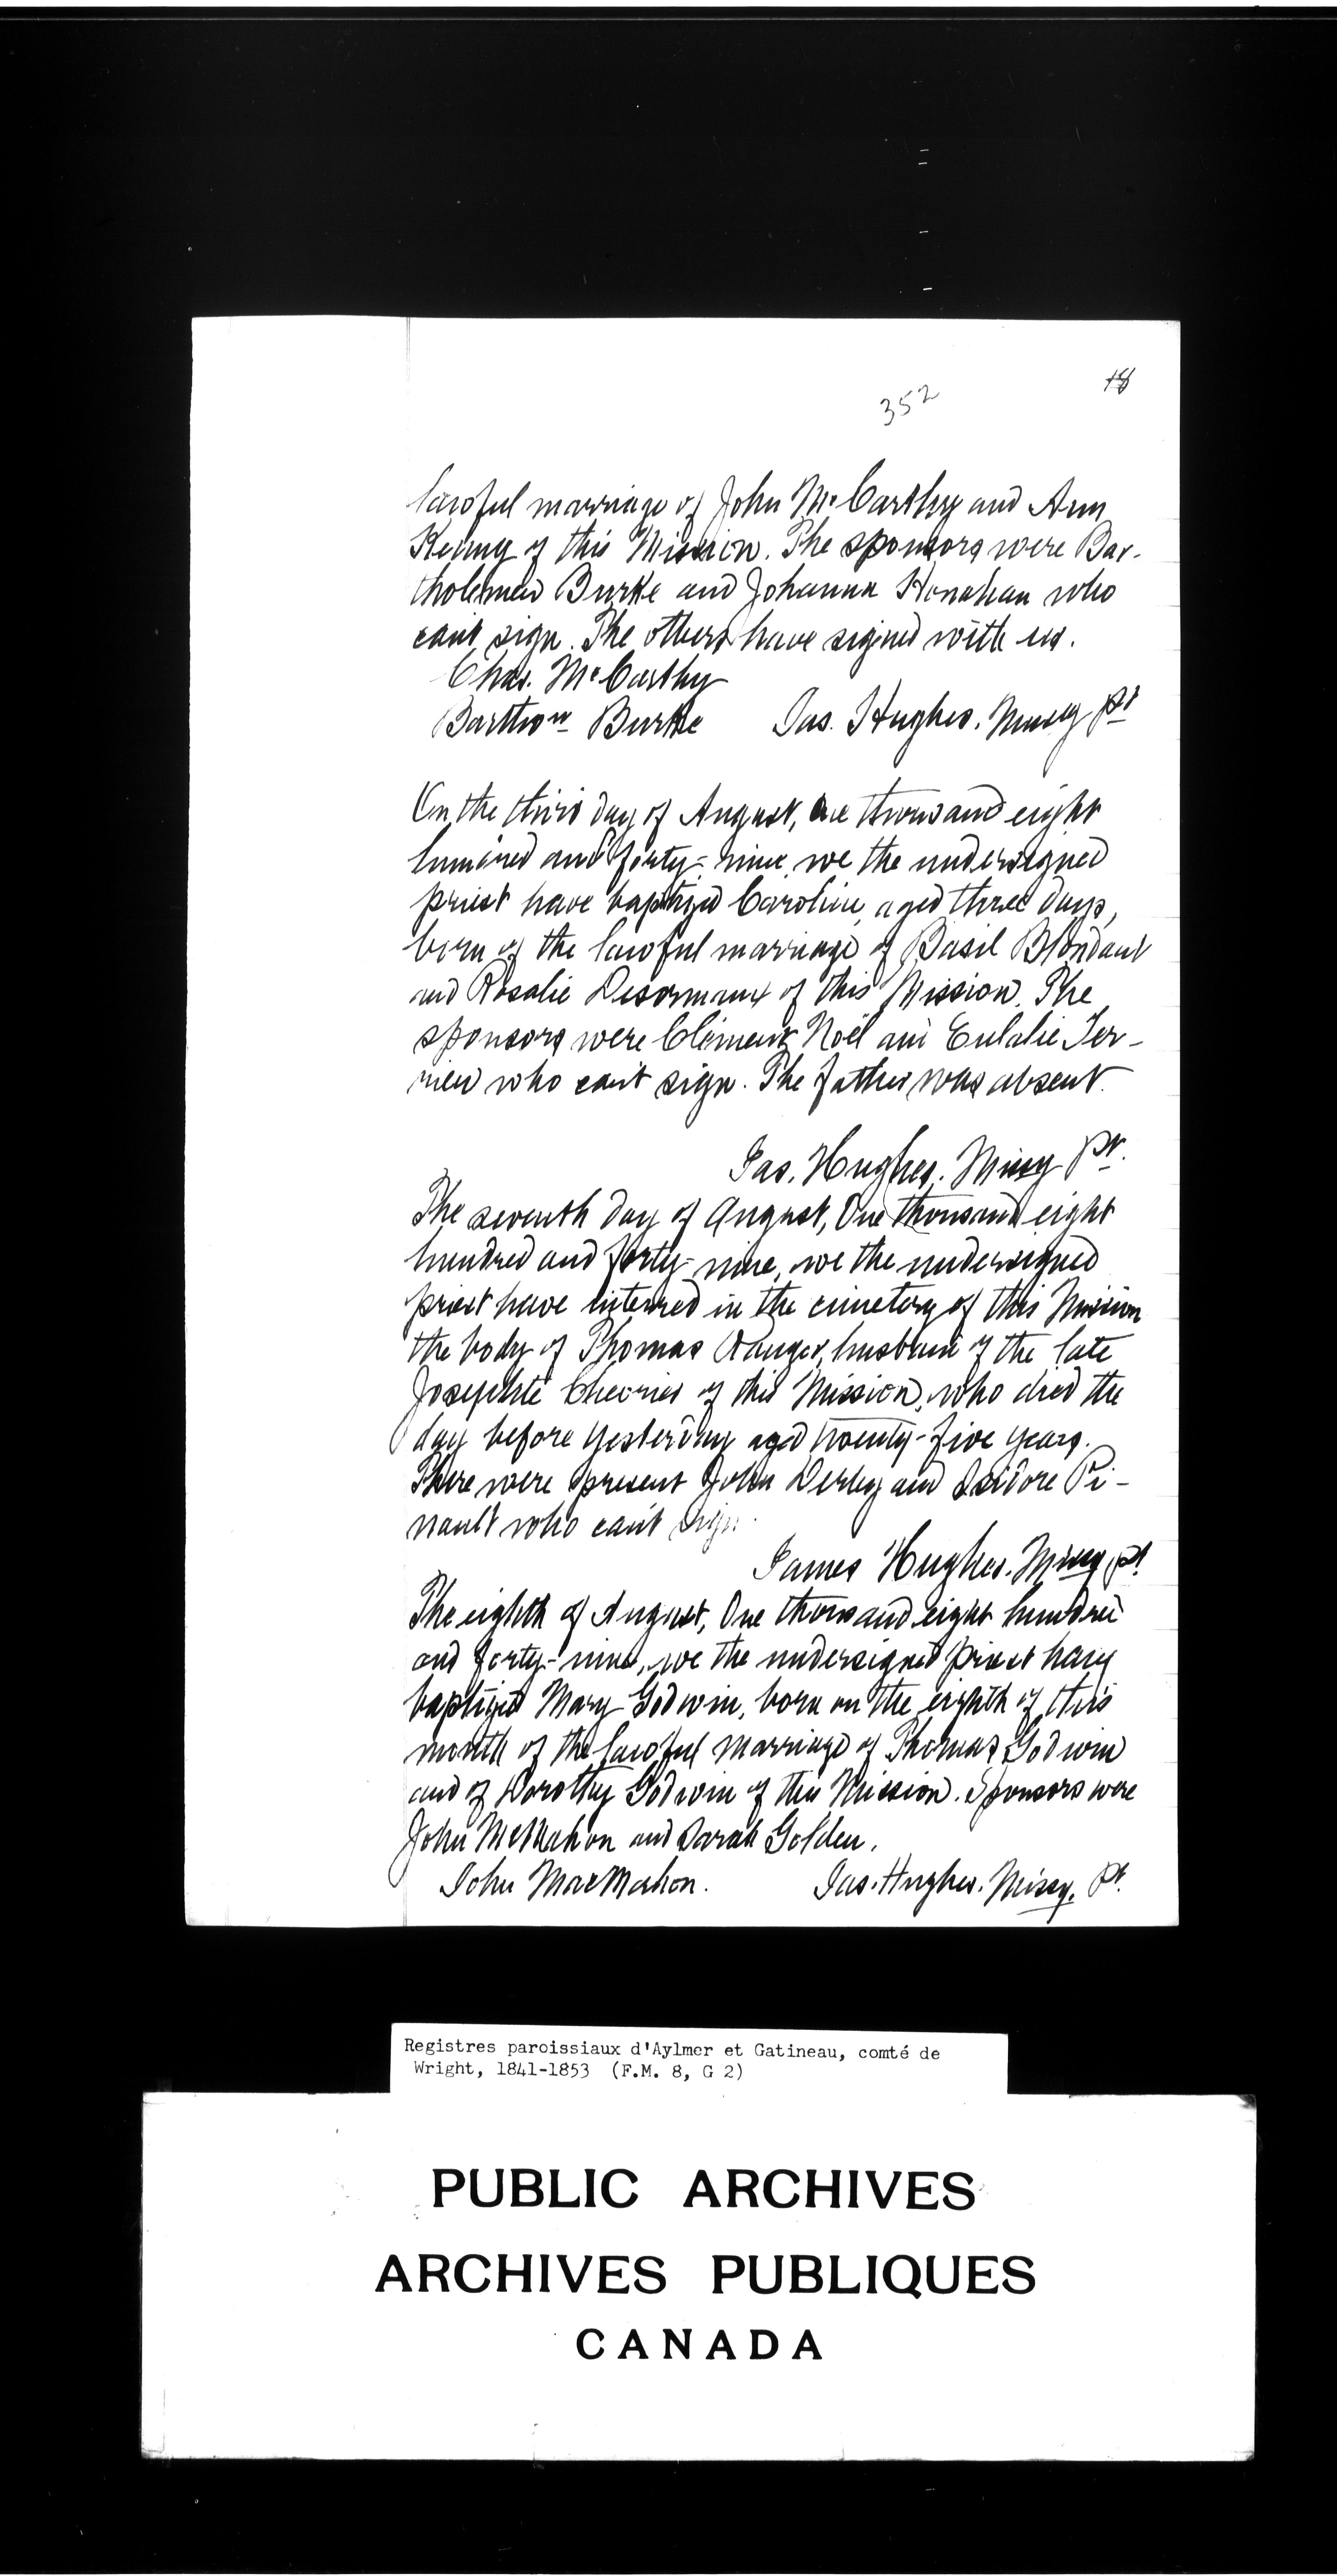 18
352
lawful marriage of John McCarthy and Ann
Kenny of this Mission. The sponsors were Bar-
tholemew Burke and Johanna Honahan who
can't sign. The others have signed with us.
Chas. McCarthy
Barthow Burke Jas. Hughes. Missy pt
On the third day of August, one thousand eight
hundred and forty-nine, we the undersigned
priest have baptized Caroline, aged three days,
born of the lawful marriage of Basil Blondant
and Rosalie Desormaux of this Mission. The
sponsors were Clément Noël and Eulalie Ter-
rien who can't sign. The father was absent.
Jas. Hughes. Missy pt.
The seventh day of August, One thousand eight
hundred and forty-nine, we the undersigned
priest have interred in the cimetery of this Mission
the body of Thomas Ranger, husband of the late
Josephte of this Mission, who died the
day before yesterday aged twenty-five years.
There were present John Derby and Isidore Pi-
nault who can't sign.
James Hughes. Missy pt
The eighth of August, One thousand eight hundred
and forty-nine, we the undersigned priest have
baptized Mary Godwin, born on the eighth of this
month of the lawful marriage of Thomas Godwin
and of Dorothy Godwin of this Mission. Sponsors were
John McMahon and Sarah Golden.
John MacMahon. Jas. Hughes. Missy. Pt.
Registres paroissiaux d'Aylmer et Gatineau, comté de
Wright, 1841-1853 (F.M. 8, G 2)
PUBLIC ARCHIVES
ARCHIVES PUBLIQUES
CANADA